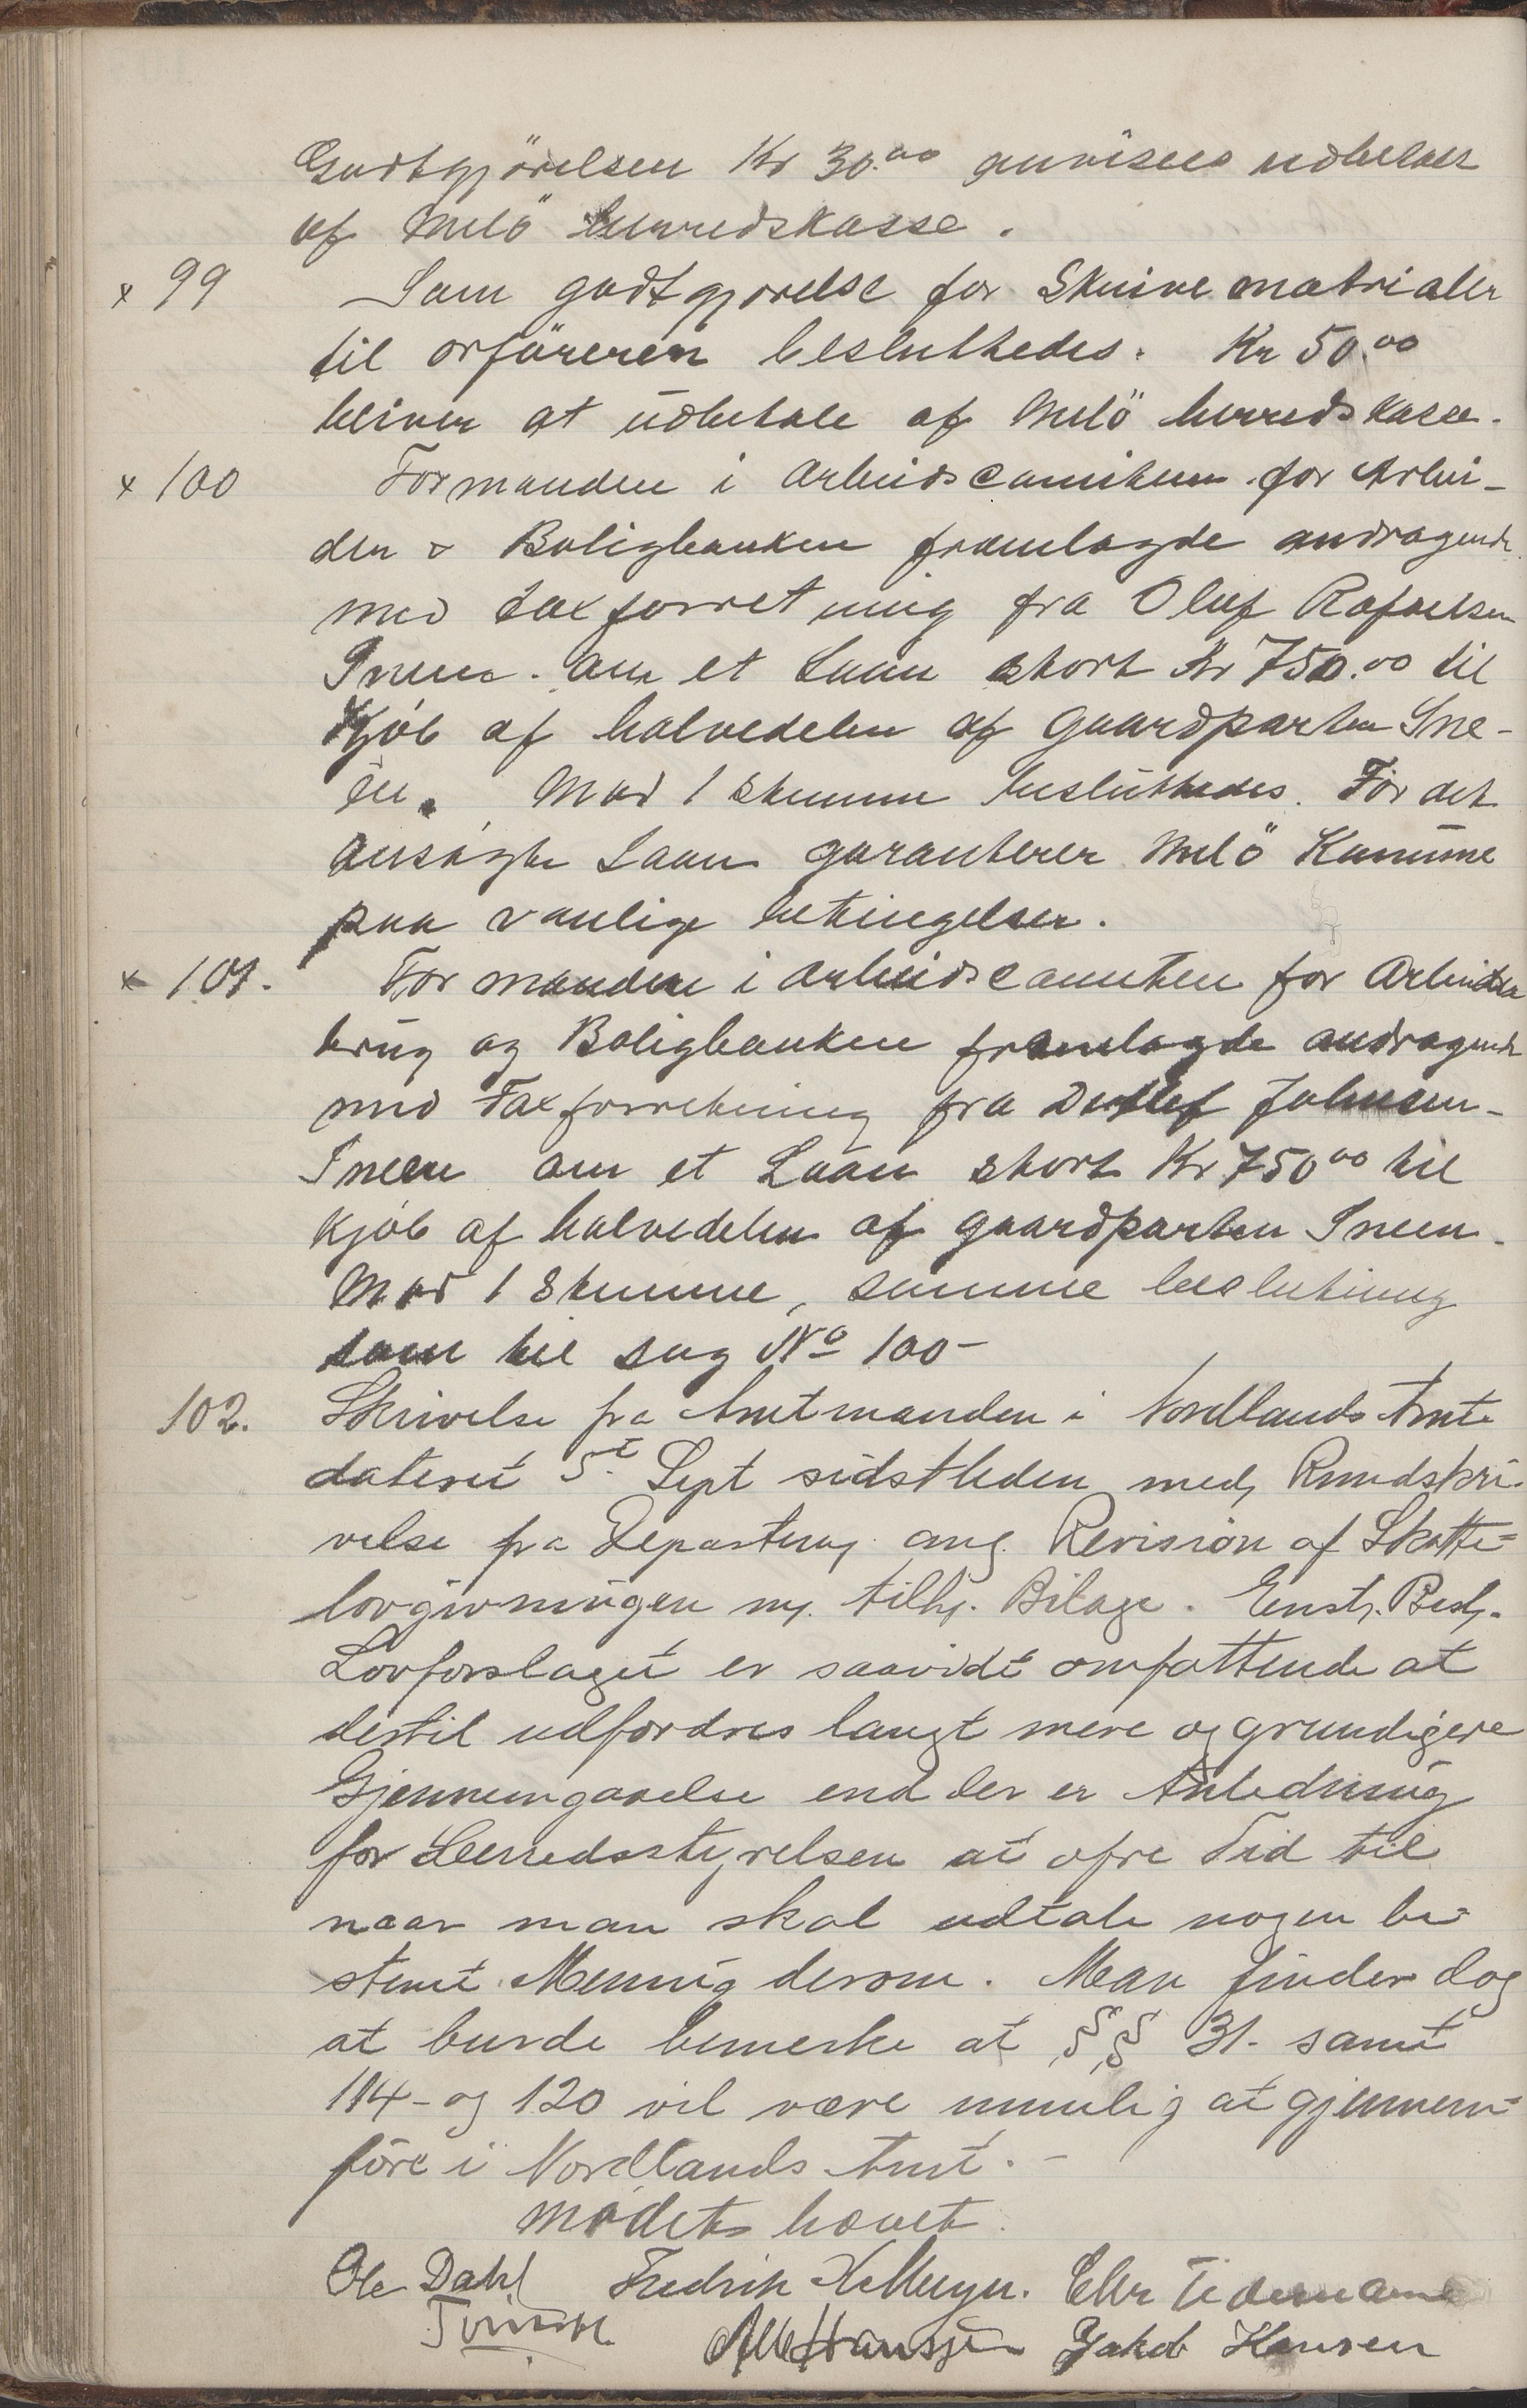 Godtgjörelsen Kr 30.00 anvises udbetalt
af Melö herredskasse.
x 99 Som godtgjorelse for Skrive matrialer
til orföreren besluttedes. Kr 50.00
bliver at udbetale af Melö herredskasse.
x 100 Formanden i arbeidscomiteen for Arbei-
der & Boligbanken fremlagde andragende
med taxforretning fra Oluf Rafaelsen
Sneen. om et Laan stort Kr 750.00 til
Kjöb af halvedelen af Gaardparten Sne-
en. Mod 1 Stemme besluttedes. For det
ansögte Laan garanterer Melö Kommune
paa vanlige betingelser.
x 101. Formanden i arbeidscomiteen for Arbeider
brug og Boligbanken fremlagde andragende
med Taxforretning fra Detlef Johnsen-
Sneen om et Laan stort Kr 750 00 til
Kjöb af halvedelen af gaardparten Sneen.
Mod 1 Stemme, samme beslutning
som til sag No 100-
102. Skrivelse fra Amtmanden i Nordlands Amt
dateret 5t Sept sidstleden med Rundskri-
velse fra Departem. ang. Revision af Skatte=
lovgivningen m. tilh. Bilage. Enst. Besl.
Lovforslaget er saavidt omfattende at
dertil udfordres langt mere og grundigere
Gjennemgaaelse end der er Anledning
for Herredsstyrelsen at ofre Tid til
naar man skal udtale nogen be-
stemt Mening derom. Man finder dog
at burde bemerke at §§ 31. samt
114- og 120 vil være umulig at gjennem=
före i Nordlands Amt. -
Mödet hævet.
Ole Dahl Fredrik Meyer. Chr Tidemann
Alb Hanssen Jakob Hansen